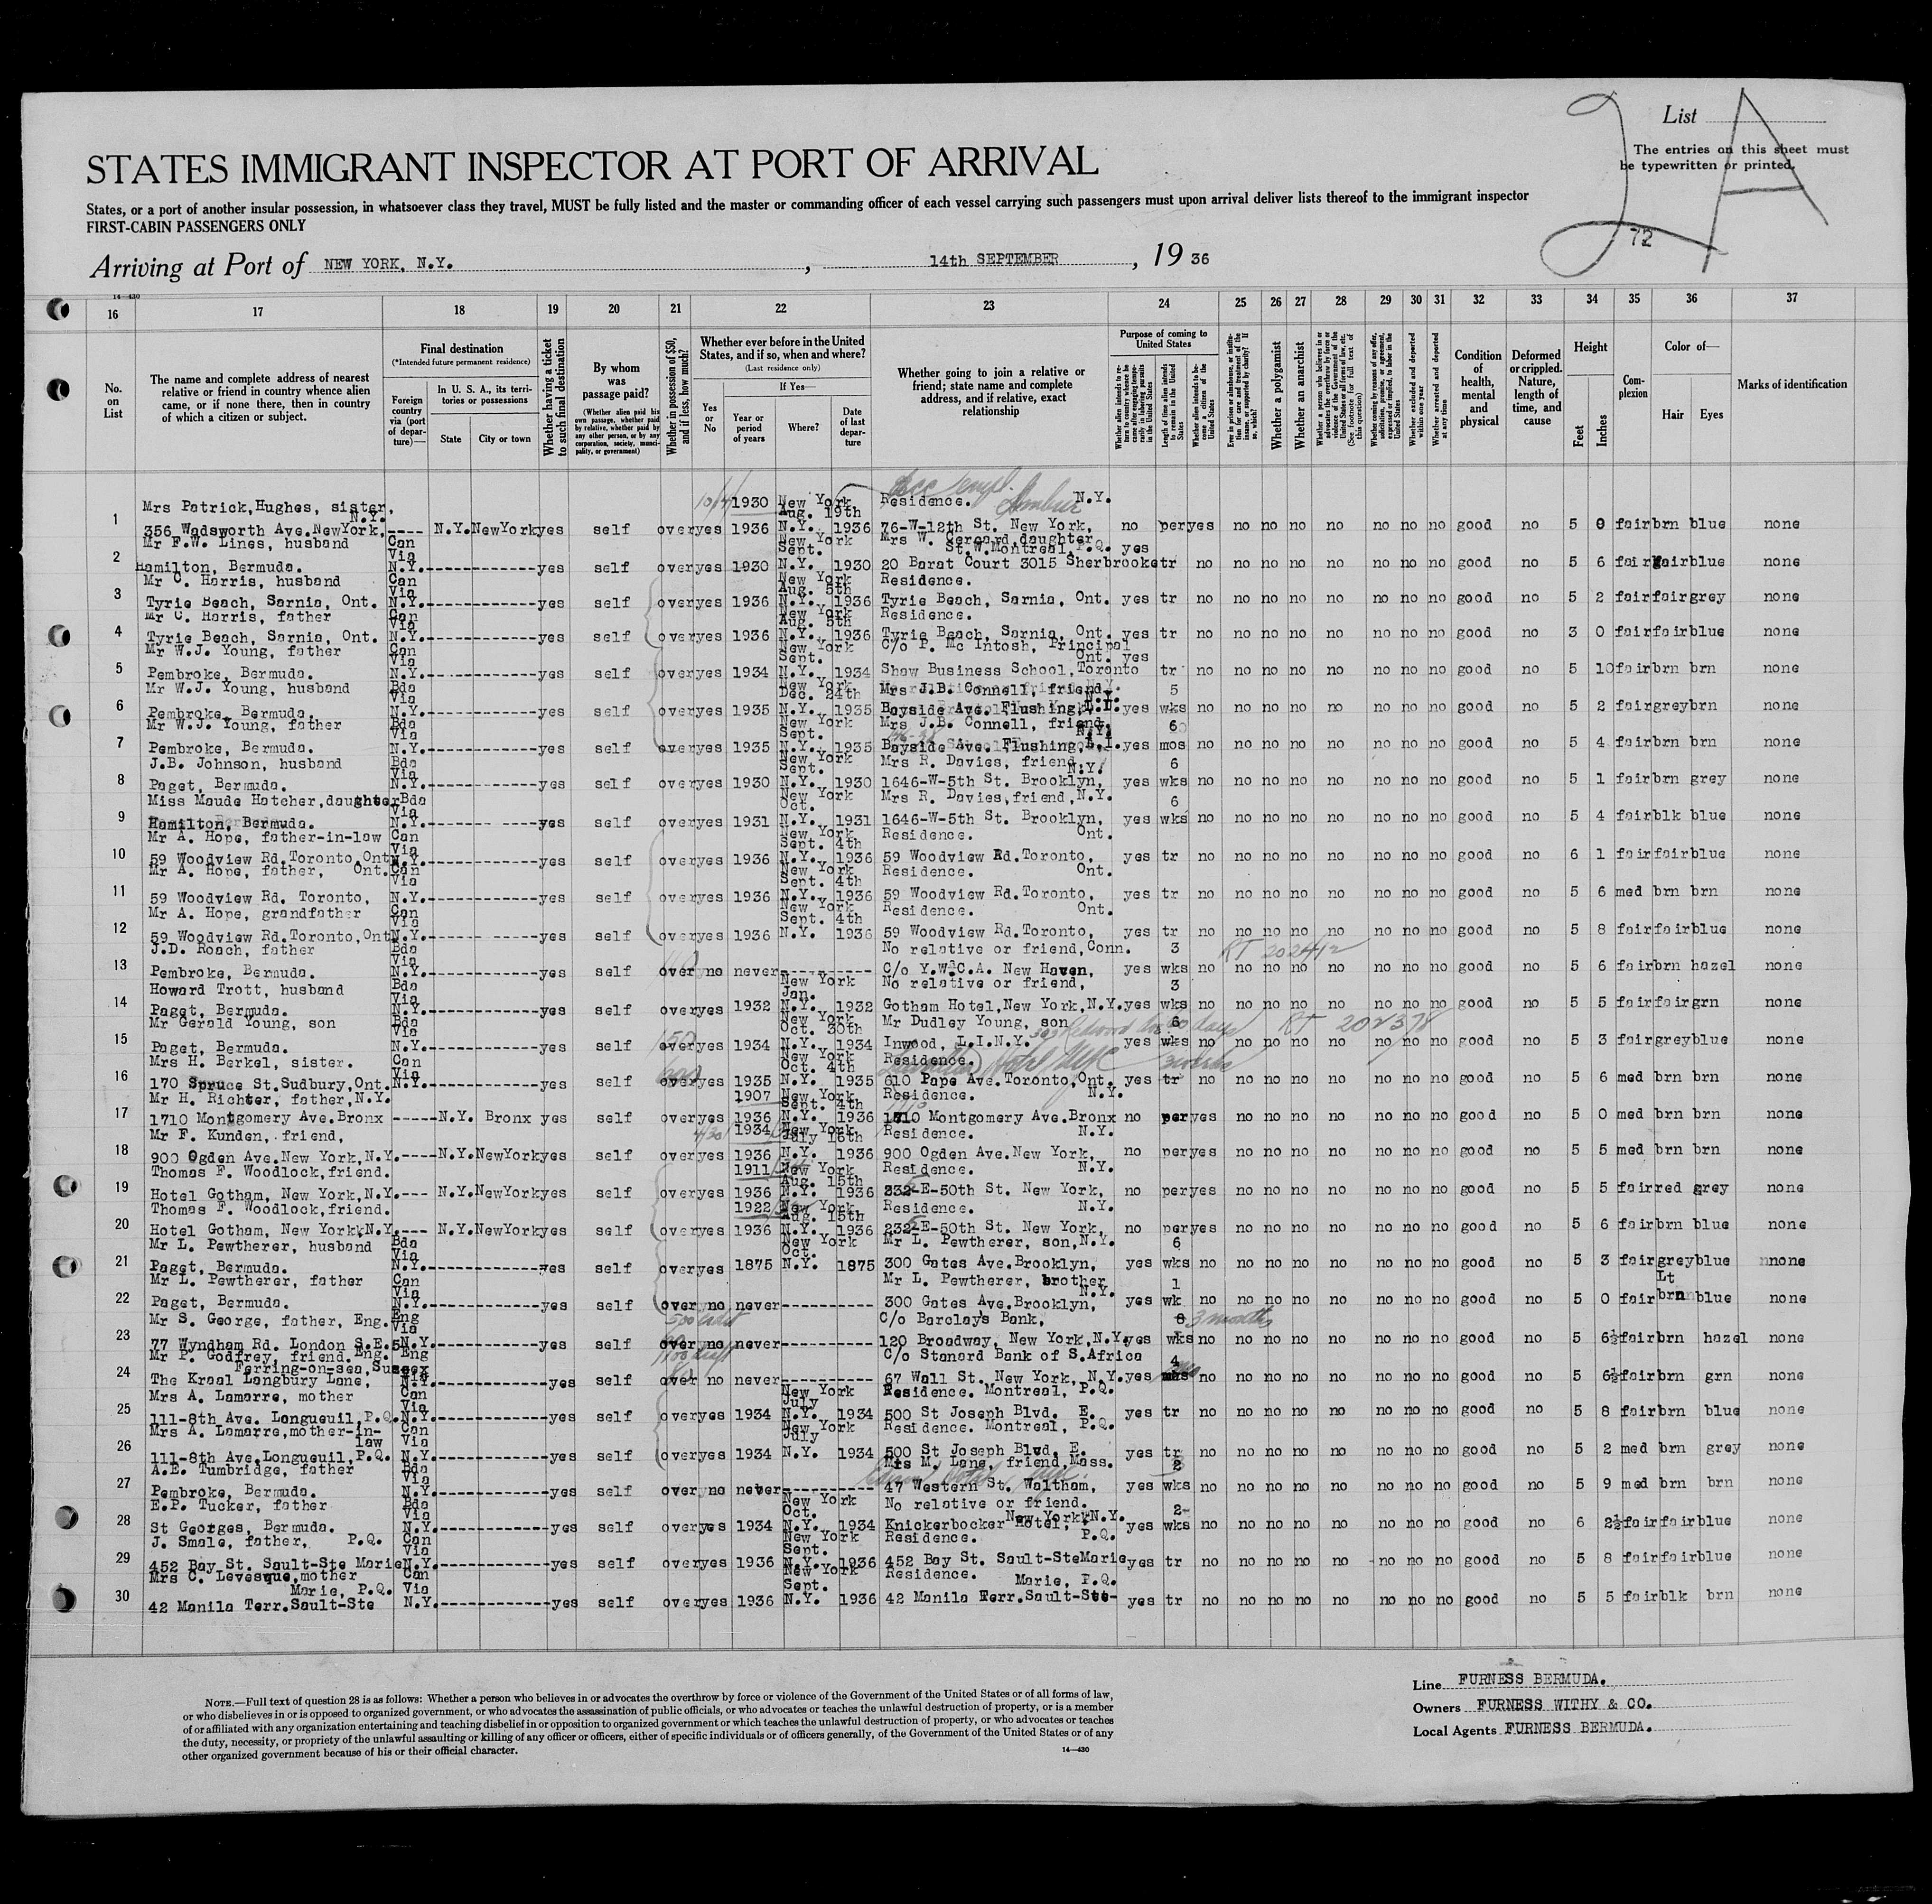 List
The entries on this sheet must
be typewritten or printed.
2 A
72
STATES IMMIGRANT INSPECTOR AT PORT OF ARRIVAL
States, or a port of another insular possession, in whatsoever class they travel, MUST be fully listed and the master or commanding officer of each vessel carrying such passengers must upon arrival deliver lists thereof to the immigrant inspector
FIRST-CABIN PASSENGERS ONLY
Arriving at Port of NEW YORK, N.Y. , 14th SEPTEMBER , 19 36
14—430
16 17 18 19 20 21 22 23 24 25 26 27 28 29 30 31 32 33 34 35 36 37
No. on List
The name and complete address of nearest relative or friend in country whence alien came, or if none there, then in country of which a citizen or subject.
Final destination
(*Intended future permanent residence)
Foreign country via (port of departure)—
In U. S. A., its territories or possessions
State City or town
Whether having a ticket to such final destination
By whom was passage paid?
(Whether alien paid his own passage, whether paid by relative, whether paid by any other person, or by any corporation, society, municipality, or government)
Whether in possession of $50, and if less, how much?
Whether ever before in the United States, and if so, when and where?
(Last residence only)
Yes or No
If Yes—
Year or period of years
Where?
Date of last departure
Whether going to join a relative or friend; state name and complete address, and if relative, exact relationship
Purpose of coming to United States
Length of time alien intends to remain in the United States
Whether a polygamist
Whether an anarchist
Whether excluded and deported within one year
Whether arrested and deported at any time
Condition of health, mental and physical
Deformed or crippled. Nature, length of time, and cause
Height
Feet Inches
Complexion
Color of—
Hair Eyes
Marks of identification
Mrs Patrick,Hughes, sister, N.Y. 1930 New York Aug. 19th Residence. N.Y.
1 356 Wadsworth Ave.NewYork, ---- N.Y. NewYork yes self over yes 1936 N.Y. 1936 76-W-12th St. New York, no per yes no no no no no no no good no 5 0 fair brn blue none
Mr F.W. Lines, husband Can Via New York Sept. Mrs W. Gerard,daughter St.W.Montreal,P.Q. yes
2 Hamilton, Bermuda. N.Y. yes self over yes 1930 N.Y. 1930 20 Barat Court 3015 Sherbrooke tr no no no no no no no no good no 5 6 fair fair blue none
Mr C. Harris, husband Can Via New York Aug. 5th Residence.
3 Tyrie Beach, Sarnia, Ont. N.Y. yes self over yes 1936 N.Y. 1936 Tyrie Beach, Sarnia, Ont. yes tr no no no no no no no no good no 5 2 fair fair grey none
Mr C. Harris, father Can Via New York Aug. 5th Residence.
4 Tyrie Beach, Sarnia, Ont. N.Y. yes self over yes 1936 N.Y. 1936 Tyrie Beach, Sarnia, Ont. yes tr no no no no no no no no good no 3 0 fair fair blue none
Mr W.J. Young, father Can Via New York Sept. C/o P. Mc Intosh, Principal Ont. yes
5 Pembroke, Bermuda. N.Y. yes self over yes 1934 N.Y. 1934 Shaw Business School,Toronto tr no no no no no no no no good no 5 10 fair brn brn none
Mr W.J. Young, husband Bda Via New York Dec. 24th Mrs J.B. Connell, friend, N.Y. 5
6 Pembroke, Bermuda. N.Y. yes self over yes 1935 N.Y. 1935 Bayside Ave. Flushing,L.I. yes wks no no no no no no no no good no 5 2 fair grey brn none
Mr W.J. Young, father Bda Via New York Sept. Mrs J.B. Connell, friend, N.Y. 6
7 Pembroke, Bermuda. N.Y. yes self over yes 1935 N.Y. 1935 Bayside Ave. Flushing,L.I. yes mos no no no no no no no no good no 5 4 fair brn brn none
J.B. Johnson, husband Bda Via New York Sept. Mrs R. Davies, friend, N.Y. 6
8 Paget, Bermuda. N.Y. yes self over yes 1930 N.Y. 1930 1646-W-5th St. Brooklyn, yes wks no no no no no no no no good no 5 1 fair brn grey none
Miss Maude Hatcher,daughter Bda Via New York Oct. Mrs R. Davies,friend, N.Y. 6
9 Hamilton, Bermuda. N.Y. yes self over yes 1931 N.Y. 1931 1646-W-5th St. Brooklyn, yes wks no no no no no no no no good no 5 4 fair blk blue none
Mr A. Hope, father-in-law Can Via New York Sept. 4th Residence. Ont.
10 59 Woodview Rd.Toronto,Ont N.Y. yes self over yes 1936 N.Y. 1936 59 Woodview Rd.Toronto, yes tr no no no no no no no no good no 6 1 fair fair blue none
Mr A. Hope, father, Ont. Can Via New York Sept. 4th Residence. Ont.
11 59 Woodview Rd. Toronto, N.Y. yes self over yes 1936 N.Y. 1936 59 Woodview Rd.Toronto, yes tr no no no no no no no no good no 5 6 med brn brn none
Mr A. Hope, grandfather Can Via New York Sept. 4th Residence. Ont.
12 59 Woodview Rd.Toronto,Ont N.Y. yes self over yes 1936 N.Y. 1936 59 Woodview Rd.Toronto, yes tr no no no no no no no no good no 5 8 fair fair blue none
J.D. Roach, father Bda Via No relative or friend,Conn. 3
13 Pembroke, Bermuda. N.Y. yes self over no never C/o Y.W.C.A. New Haven, yes wks no no no no no no no no good no 5 6 fair brn hazel none
Howard Trott, husband Bda Via New York Jan. No relative or friend, 3
14 Paget, Bermuda. N.Y. yes self over yes 1932 N.Y. 1932 Gotham Hotel,New York,N.Y. yes wks no no no no no no no no good no 5 5 fair fair grn none
Mr Gerald Young, son Bda Via New York Oct. 30th Mr Dudley Young, son 6 RT 202378
15 Paget, Bermuda. N.Y. yes self over yes 1934 N.Y. 1934 Inwood, L.I.N.Y. yes wks no no no no no no no no good no 5 3 fair grey blue none
Mrs H. Berkel, sister. Can Via New York Oct. 4th Residence.
16 170 Spruce St.Sudbury,Ont. N.Y. yes self over yes 1935 N.Y. 1935 610 Pape Ave.Toronto,Ont. yes tr no no no no no no no no good no 5 6 med brn brn none
Mr H. Richter, father,N.Y. 1907 New York Sept. 4th Residence. N.Y.
17 1710 Montgomery Ave.Bronx ----- N.Y. Bronx yes self over yes 1936 N.Y. 1936 1710 Montgomery Ave.Bronx no per yes no no no no no no no good no 5 0 med brn brn none
Mr F. Kunden, friend, 1934 New York July 16th Residence. N.Y.
18 900 Ogden Ave.New York,N.Y. ---- N.Y. NewYork yes self over yes 1936 N.Y. 1936 900 Ogden Ave.New York, no per yes no no no no no no no good no 5 5 med brn brn none
Thomas F. Woodlock,friend. 1911 New York Aug. 15th Residence. N.Y.
19 Hotel Gotham, New York,N.Y. --- N.Y. NewYork yes self over yes 1936 N.Y. 1936 232-E-50th St. New York, no per yes no no no no no no no good no 5 5 fair red grey none
Thomas F. Woodlock,friend. 1922 New York Aug. 15th Residence. N.Y.
20 Hotel Gotham, New York,N.Y. ---- N.Y. NewYork yes self over yes 1936 N.Y. 1936 232-E-50th St. New York, no per yes no no no no no no no good no 5 6 fair brn blue none
Mr L. Pewtherer, husband Bda Via New York Oct. Mr L. Pewtherer, son,N.Y. 6
21 Paget, Bermuda. N.Y. yes self over yes 1875 N.Y. 1875 300 Gates Ave.Brooklyn, yes wks no no no no no no no no good no 5 3 fair grey blue none
Mr L. Pewtherer, father Can Via Mr L. Pewtherer, brother N.Y. 1 Lt
22 Paget, Bermuda. N.Y. yes self over no never 300 Gates Ave.Brooklyn, yes wk no no no no no no no no good no 5 0 fair brn blue none
Mr S. George, father, Eng. Eng Via C/o Barclays Bank, 8 3 months
23 77 Wyndham Rd. London S.E.5 N.Y. yes self over no never 120 Broadway, New York,N.Y. yes wks no no no no no no no no good no 5 6½ fair brn hazel none
Mr P. Godfrey, friend. Eng. Eng Ferring-on-sea,Sussex Via C/o Stanard Bank of S.Africa 4
24 The Kraal Langbury Lane, N.Y. yes self over no never 67 Wall St. New York, N.Y. yes no no no no no no no no good no 5 6½ fair brn grn none
Mrs A. Lamarre, mother Can Via New York July Residence. Montreal, P.Q.
25 111-8th Ave. Longueuil,P.Q. N.Y. yes self over yes 1934 N.Y. 1934 500 St Joseph Blvd. E. yes tr no no no no no no no no good no 5 8 fair brn blue none
Mrs A. Lamarre,mother-in-law Can Via New York July Residence. Montreal, P.Q.
26 111-8th Ave.Longueuil,P.Q. N.Y. yes self over yes 1934 N.Y. 1934 500 St Joseph Blvd. E. yes tr no no no no no no no no good no 5 2 med brn grey none
A.E. Tumbridge, father Bda Via Mrs M. Lane, friend,Mass. 2
27 Pembroke, Bermuda. N.Y. yes self over no never 47 Western St. Waltham, yes wks no no no no no no no no good no 5 9 med brn brn none
E.P. Tucker, father Bda Via New York Oct. No relative or friend. New York,N.Y. 2
28 St Georges, Bermuda. N.Y. yes self over yes 1934 N.Y. 1934 Knickerbocker Hotel, yes wks no no no no no no no no good no 6 2½ fair fair blue none
J. Smale, father, P.Q. Can Via New York Sept. Residence. P.Q.
29 452 Bay St. Sault-Ste Marie N.Y. yes self over yes 1936 N.Y. 1936 452 Bay St. Sault-SteMarie yes tr no no no no no no no no good no 5 8 fair fair blue none
Mrs C. Levesque,mother Marie, P.Q. Can Via New York Sept. Residence. Marie, P.Q.
30 42 Manila Terr.Sault-Ste N.Y. yes self over yes 1936 N.Y. 1936 42 Manila Terr.Sault-Ste- yes tr no no no no no no no no good no 5 5 fair blk brn none
NOTE.—Full text of question 28 is as follows: Whether a person who believes in or advocates the overthrow by force or violence of the Government of the United States or of all forms of law,
or who disbelieves in or is opposed to organized government, or who advocates the assassination of public officials, or who advocates or teaches the unlawful destruction of property, or is a member
of or affiliated with any organization entertaining and teaching disbelief in or opposition to organized government or which teaches the unlawful destruction of property, or who advocates or teaches
the duty, necessity, or propriety of the unlawful assaulting or killing of any officer or officers, either of specific individuals or of officers generally, of the Government of the United States or of any
other organized government because of his or their official character.
14—430
Line FURNESS BERMUDA.
Owners FURNESS WITHY & CO.
Local Agents FURNESS BERMUDA.